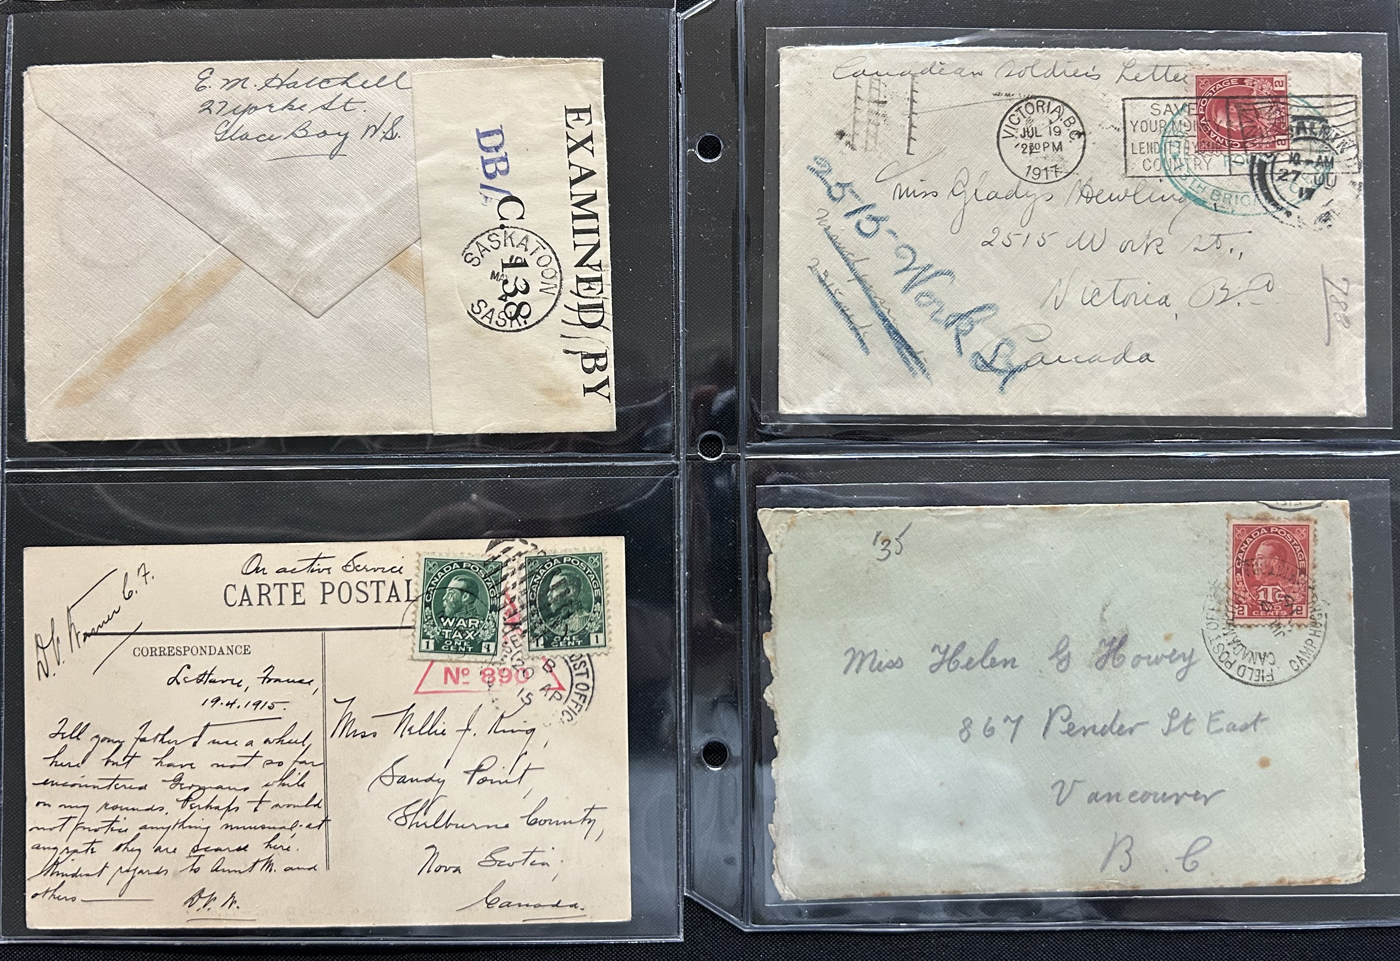 E. M. Hatchell
27 Yorke St.
Glace Bay N.S.
EXAMINED BY
DB/
C. 138
SASKATOON
SASK.
Canadian Soldier's Letter
VICTORIA, B.C.
JUL 19
PM
1917
SAVE
YOUR MON
LEND IT TO
COUNTRY
CANADA POSTAGE
2 2
BRIG
AM
27
17
Miss Gladys Hewling
2515 Work St.,
Victoria, B.C.
Canada
2515-Work St
783
On active Service
CARTE POSTAL
CORRESPONDANCE
Le Havre, France,
19.4.1915.
Tell your father I use a wheel
here but have not so far
encountered Germans while
on my rounds. Perhaps I would
not notice anything unusual at
anyrate they are scarce here.
Kindest regards to Aunt M. and
others
CANADA POSTAGE
WAR
TAX
ONE
CENT
1
CANADA POSTAGE
1 CENT 1
Nº 890
AP
15
POST OFFICE
Miss Nellie J. King,
Sandy Point,
Shelburne County,
Nova Scotia,
Canada.
'35
CANADA POSTAGE
1TC
2 CENTS 2
FIELD POST OF
CANADA
CAMP HUGHES
Miss Helen G Howey
867 Pender St East
Vancouver
B C